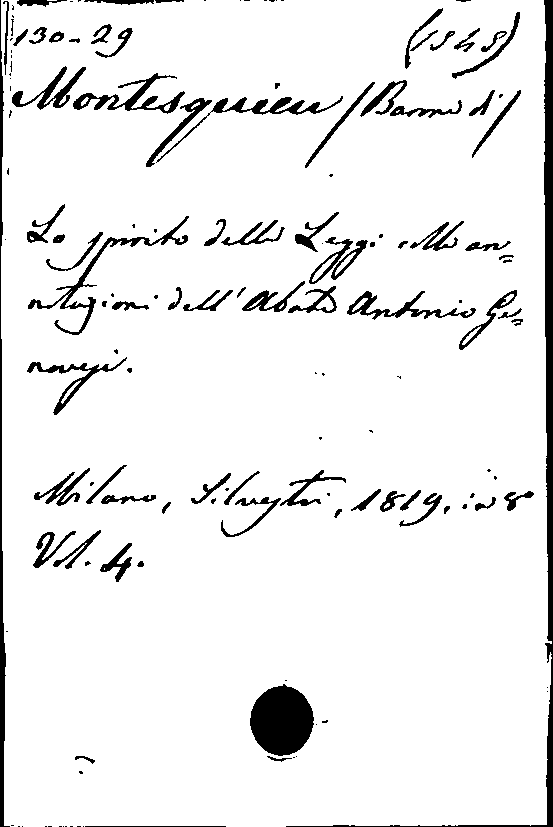 130-29 (1545)
Montesquieu / Barone di /
Lo spirito delle Leggi colle an=
notazioni dell' Abate Antonio Ge=
novesi.
Milano, Silvestri, 1819, in 8°
Vol. 4.